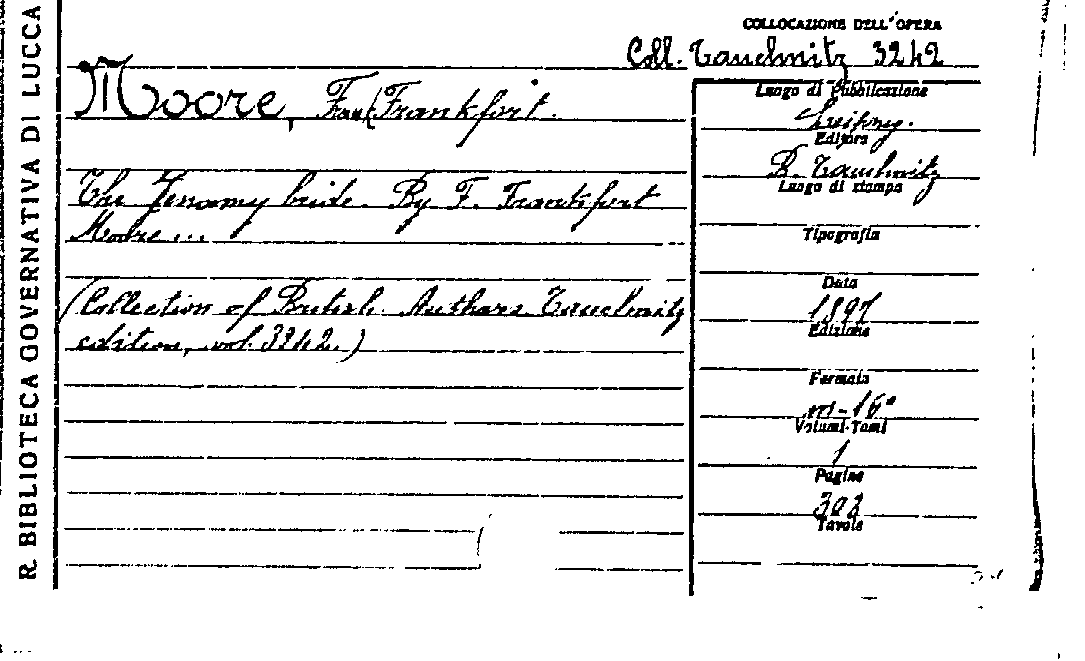 R. BIBLIOTECA GOVERNATIVA DI LUCCA
COLLOCAZIONE DELL'OPERA
Coll. Tauchnitz 3242
Moore, Frankfort.
The Jessamy bride. By F. Frankfort
Moore...
(Collection of British Authors Tauchnitz
edition, vol. 3242.)
Luogo di Pubblicazione
Leipzig.
Editore
B. Tauchnitz
Luogo di stampa
Tipografia
Data
1897
Edizione
Formato
in-16°
Volumi-Tomi
1
Pagine
Tavole